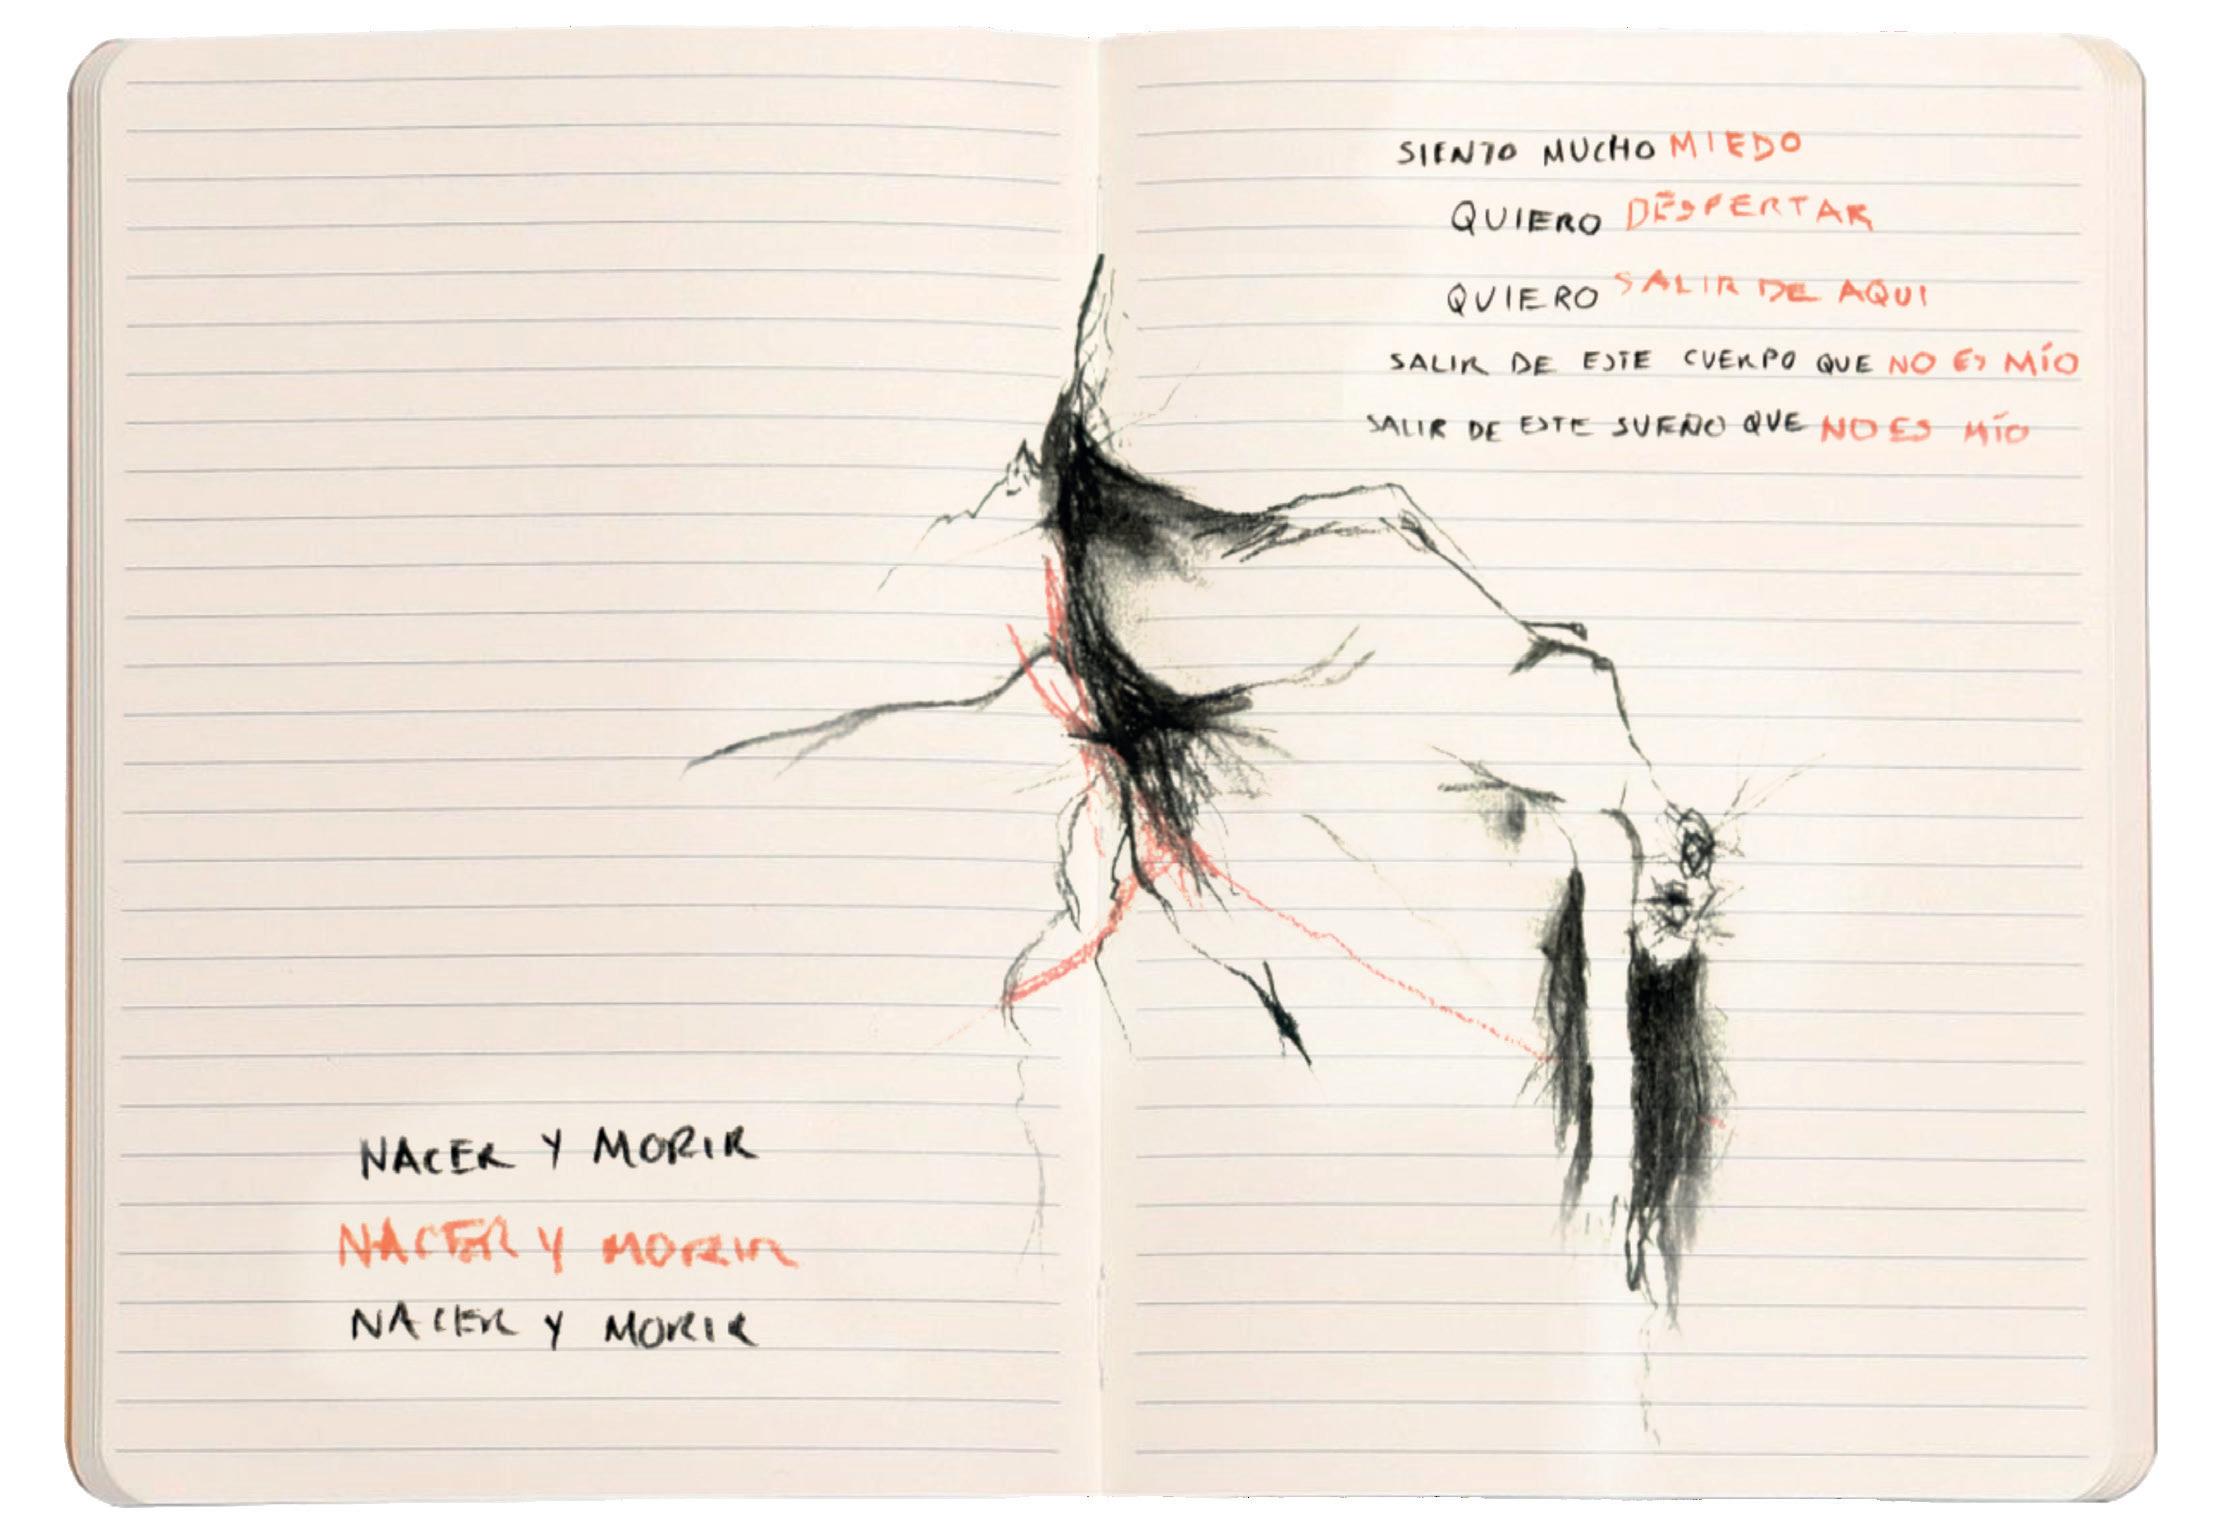 NACER Y MORIR
NACER Y MORIR
NACER Y MORIR
SIENTO MUCHO MIEDO
QUIERO DESPERTAR
QUIERO SALIR DE AQUI
SALIR DE ESTE CUERPO QUE NO ES MÍO
SALIR DE ESTE SUEÑO QUE NO ES MÍO